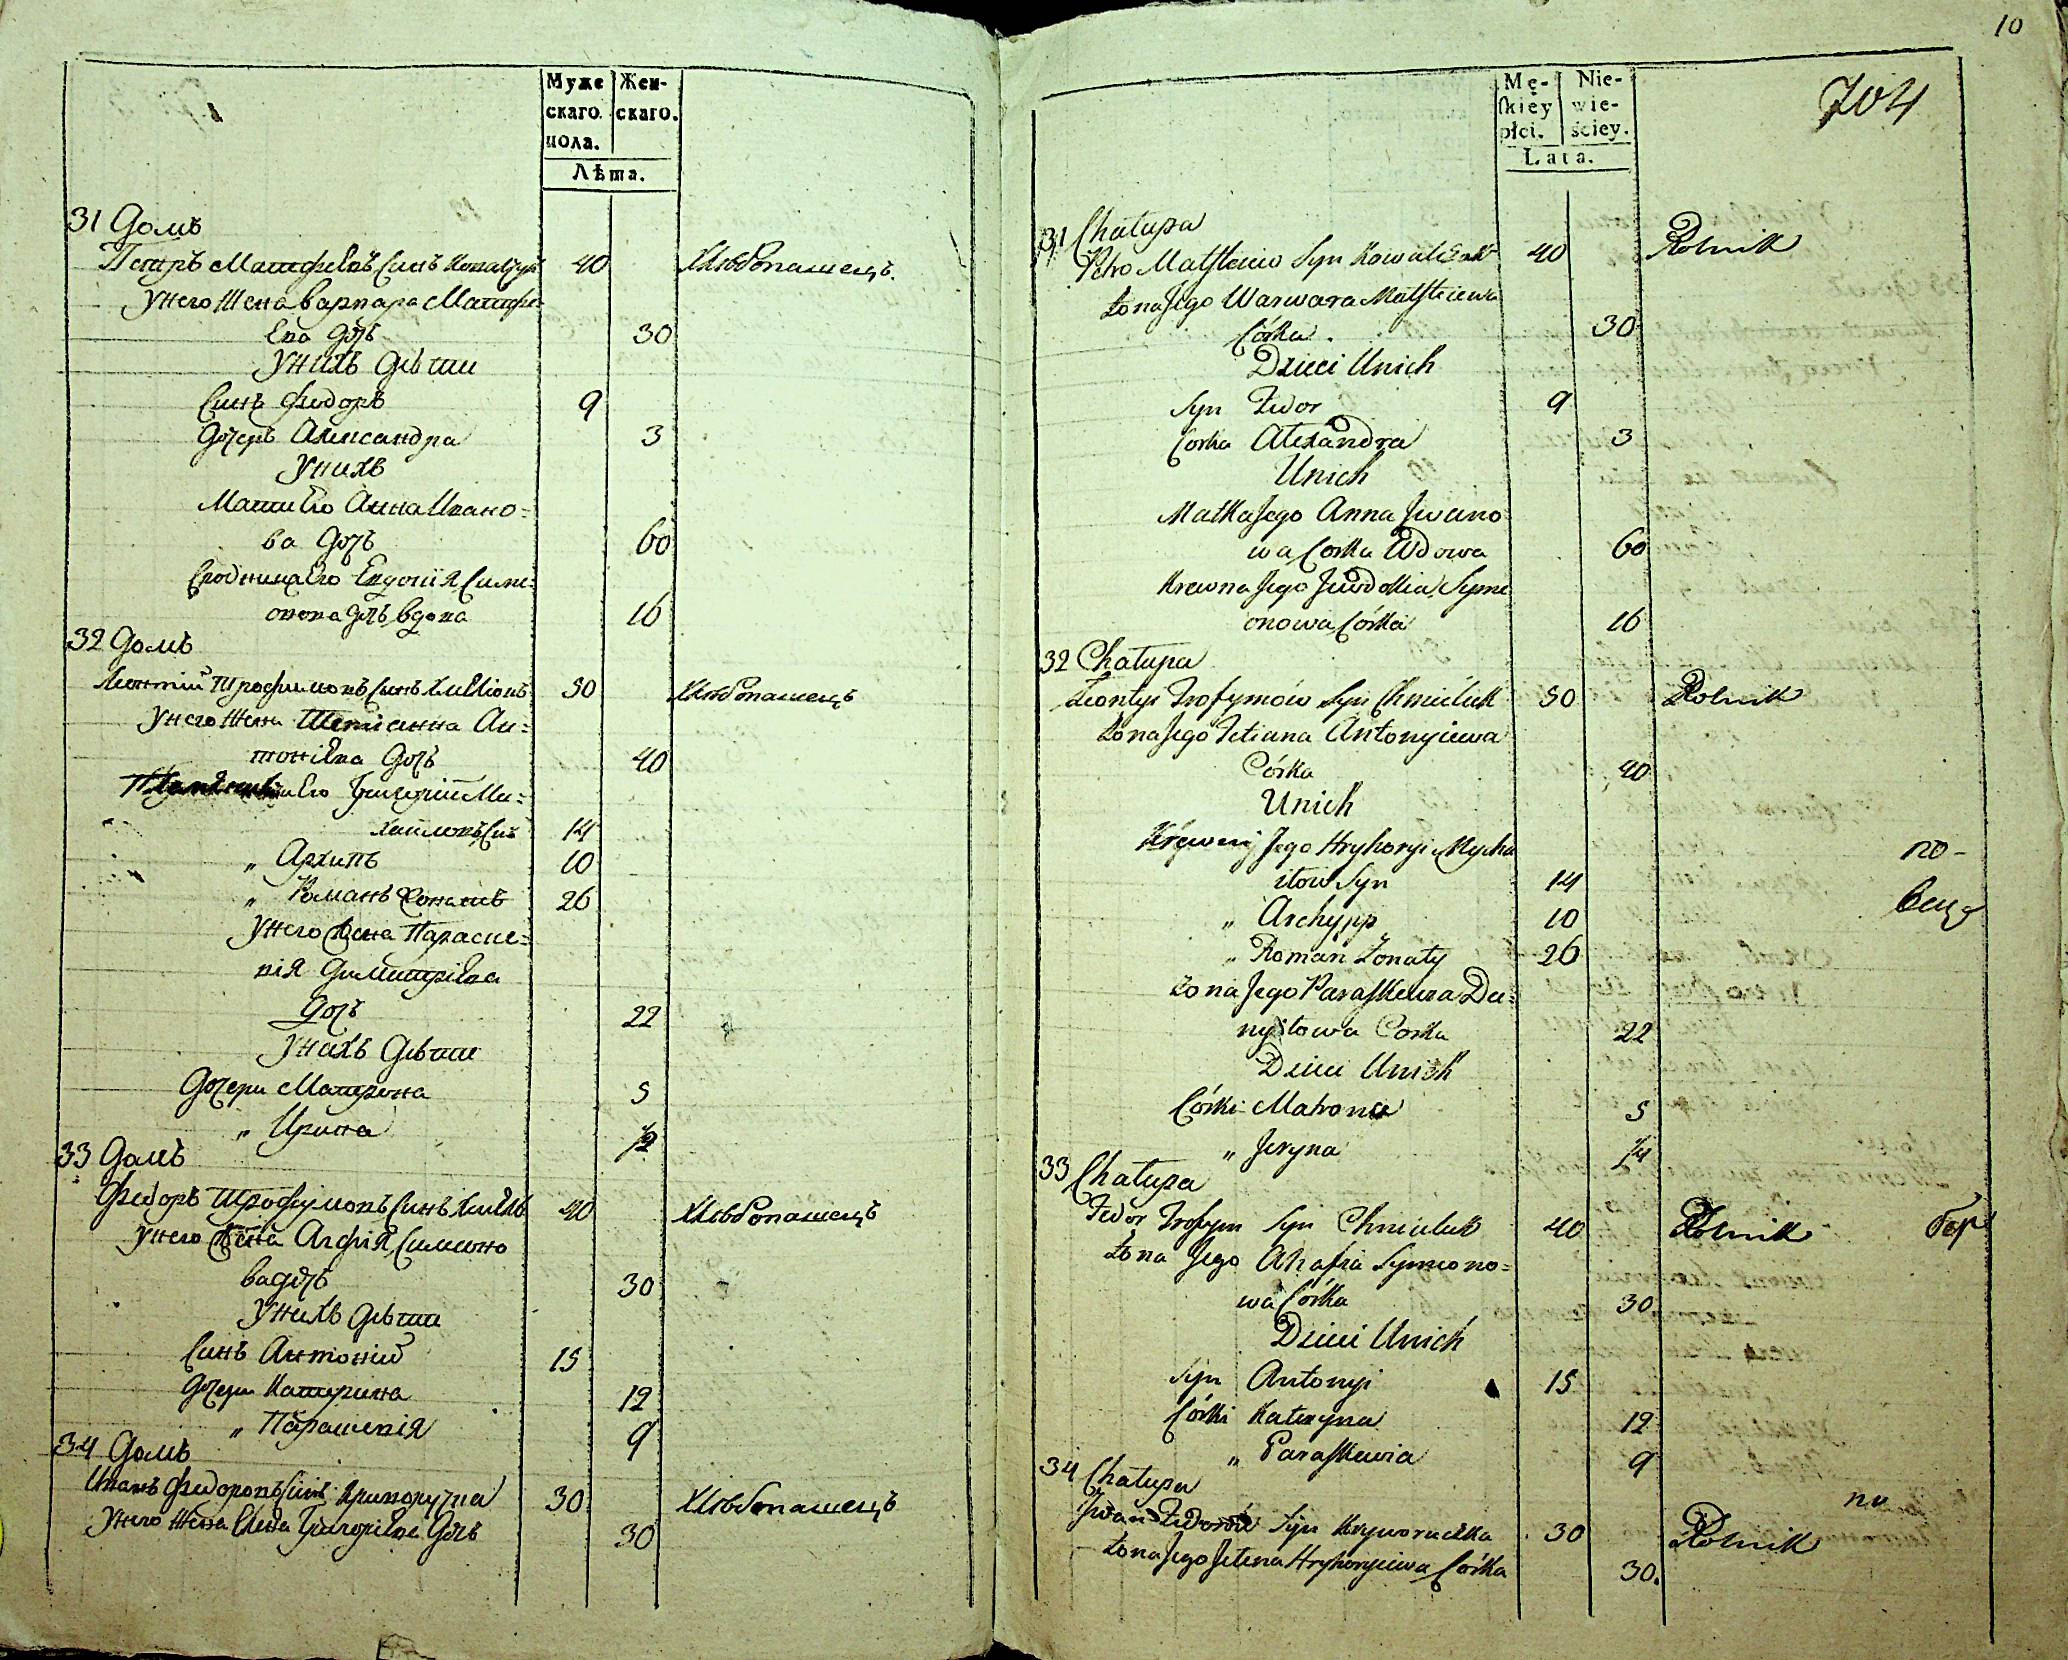 Муже
скаго
пола.
Жен-
скаго.
Лѣта.
31 Домъ
Петръ Матфеевъ Синъ Ковальчукъ 40 Хлѣбопашецъ.
Унего Жена Варвара Матфе-
ева Дочь 30
Унихъ Дѣти
Синъ Федоръ 9
Дочерь Александра 3
Унихъ
Мати Его Анна Ивано=
ва Дочъ 60
Сродница Его Евдокія Симе=
онова Дочь вдова 16
32 Домъ
Леонтій Трофимовъ Сынъ 50 Хлѣбопашецъ
Унего Жена Тетіанна Ан=
тоніева Дочъ 40
Его Григорій Ми=
хайловъ Синъ 14
„ Архипъ 10
„ Романъ 26
Унего Жена Параске=
вія Димитріева
Дочъ 22
Унихъ Дѣти
Дочери Матрона 5
„ Ирина
33 Домъ
Федоръ Трофимовъ Синъ 40 Хлѣбопашецъ
Унего Жена Агафія Симионо
ва дочь 30
Унихъ Дѣти
Синъ Антоній 15
Дочери Катерина 12
„ Парашевія 9
34 Домъ
Иванъ Федоровъ Синъ Криворучка 30 Хлѣбопашецъ
Унего Жена Елена Григоріева Дочь 30
10
704
Mę-
skiey
płci.
Nie-
wie-
ściey.
Lata.
31 Chałupa
Petro Matfteiow Syn Kowalczuk 40 Rolnik
Żona Jego Warwara Matfteiewa
Córka. 30
Dzieci Unich
Syn Fedor 9
Corka Alexandra 3
Unich
Matka Jego Anna Jwano
wa Corka Wdowa 60
Krewna Jego Jewdokia Syme
onowa Córka 16
32 Chałupa
Leontyi Trofymów Syn Chmieluk 50 Rolnik
Żona Jego Tetiana Antonyiewa
Córka 40
Unich
Krewny Jego Hryhoryi Mycha
iłow Syn 14
„ Archypp 10
„ Roman Żonaty 26
Żona Jego Paraskewia De=
nyiłowa Corka 22
Dzieci Unich
Córki Matrona 5
„ Jeryna
33 Chałupa
Fedor Trofym Syn Chmieluk 40 Rolnik
Żona Jego Ahafia Symiono=
wa Córka 30
Dzieci Unich
Syn Antonyi 15
Córki Katezyna 12
„ Paraskewia 9
34 Chałupa
Jwan Fedorów Syn Kryworuczka 30 Rolnik
Żona Jego Jelena Hryhoryiewa Córka 30.
по-